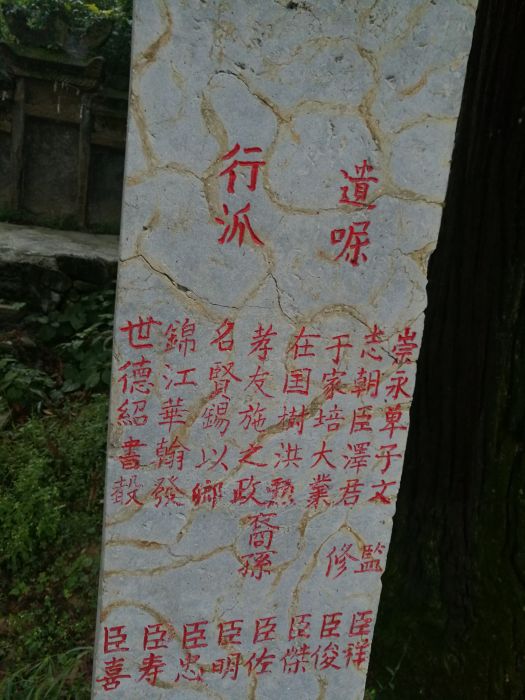 遺嘱
行派
崇永單于文
志朝臣澤君
于家培大業
在国樹洪勲
孝友施之政
名賢錫以鄉
錦江華翰發
世德紹書穀
監修
裔孫
臣祥
臣俊
臣傑
臣佐
臣明
臣忠
臣寿
臣喜